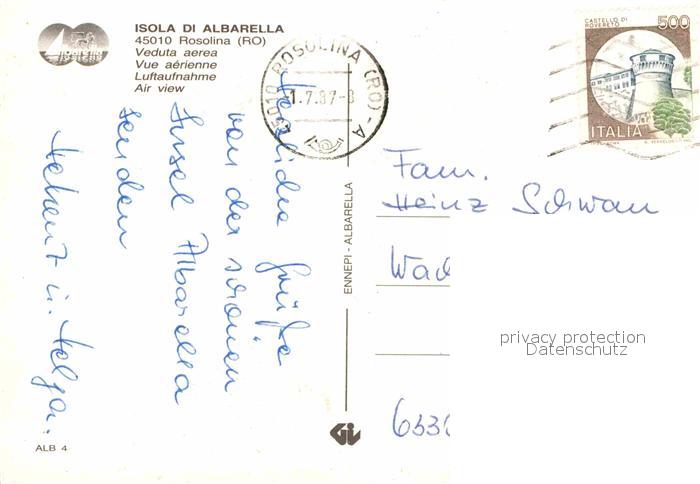 ISOLA DI ALBARELLA
45010 Rosolina (RO)
Veduta aerea
Vue aérienne
Luftaufnahme
Air view
45010 ROSOLINA (RO) - A
1.7.87-8
CASTELLO DI
ROVERETO
500
ITALIA
Herzliche Grüße
von der schönen
Insel Albarella
senden
Helmut u. Helga.
ENNEPI - ALBARELLA
Fam.
Heinz Schwan
privacy protection
Datenschutz
Gi
ALB 4